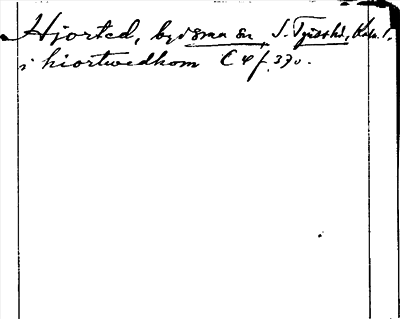 Hjorted, by i sma sn, S. Tjusts hd, Kalm. l.
i hiortwedhom C 4 f. 370.